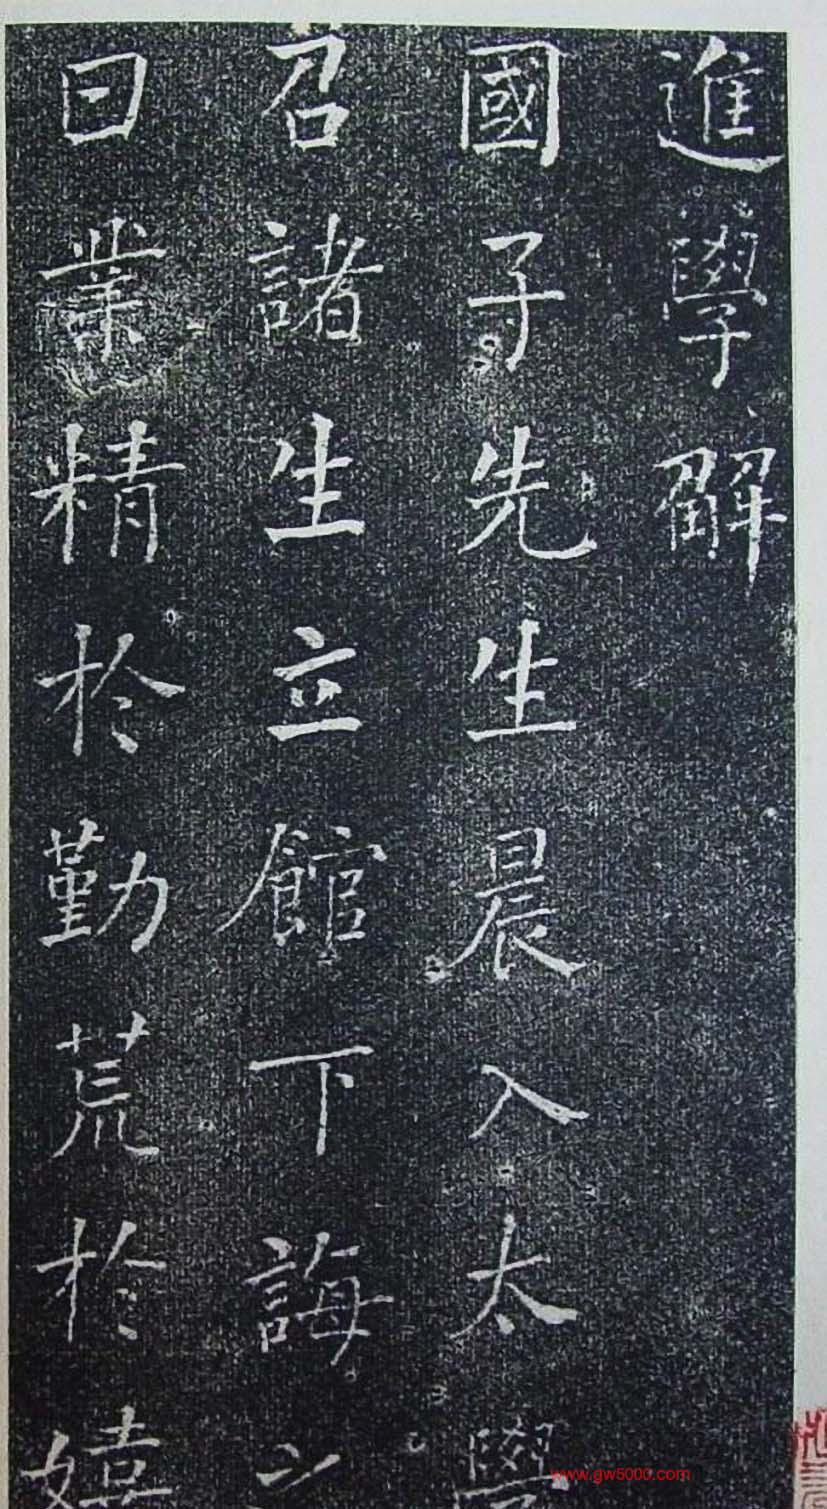 進學解
國子先生晨入太學
召諸生立館下誨之
曰業精於勤荒於嬉
www.gw5000.com